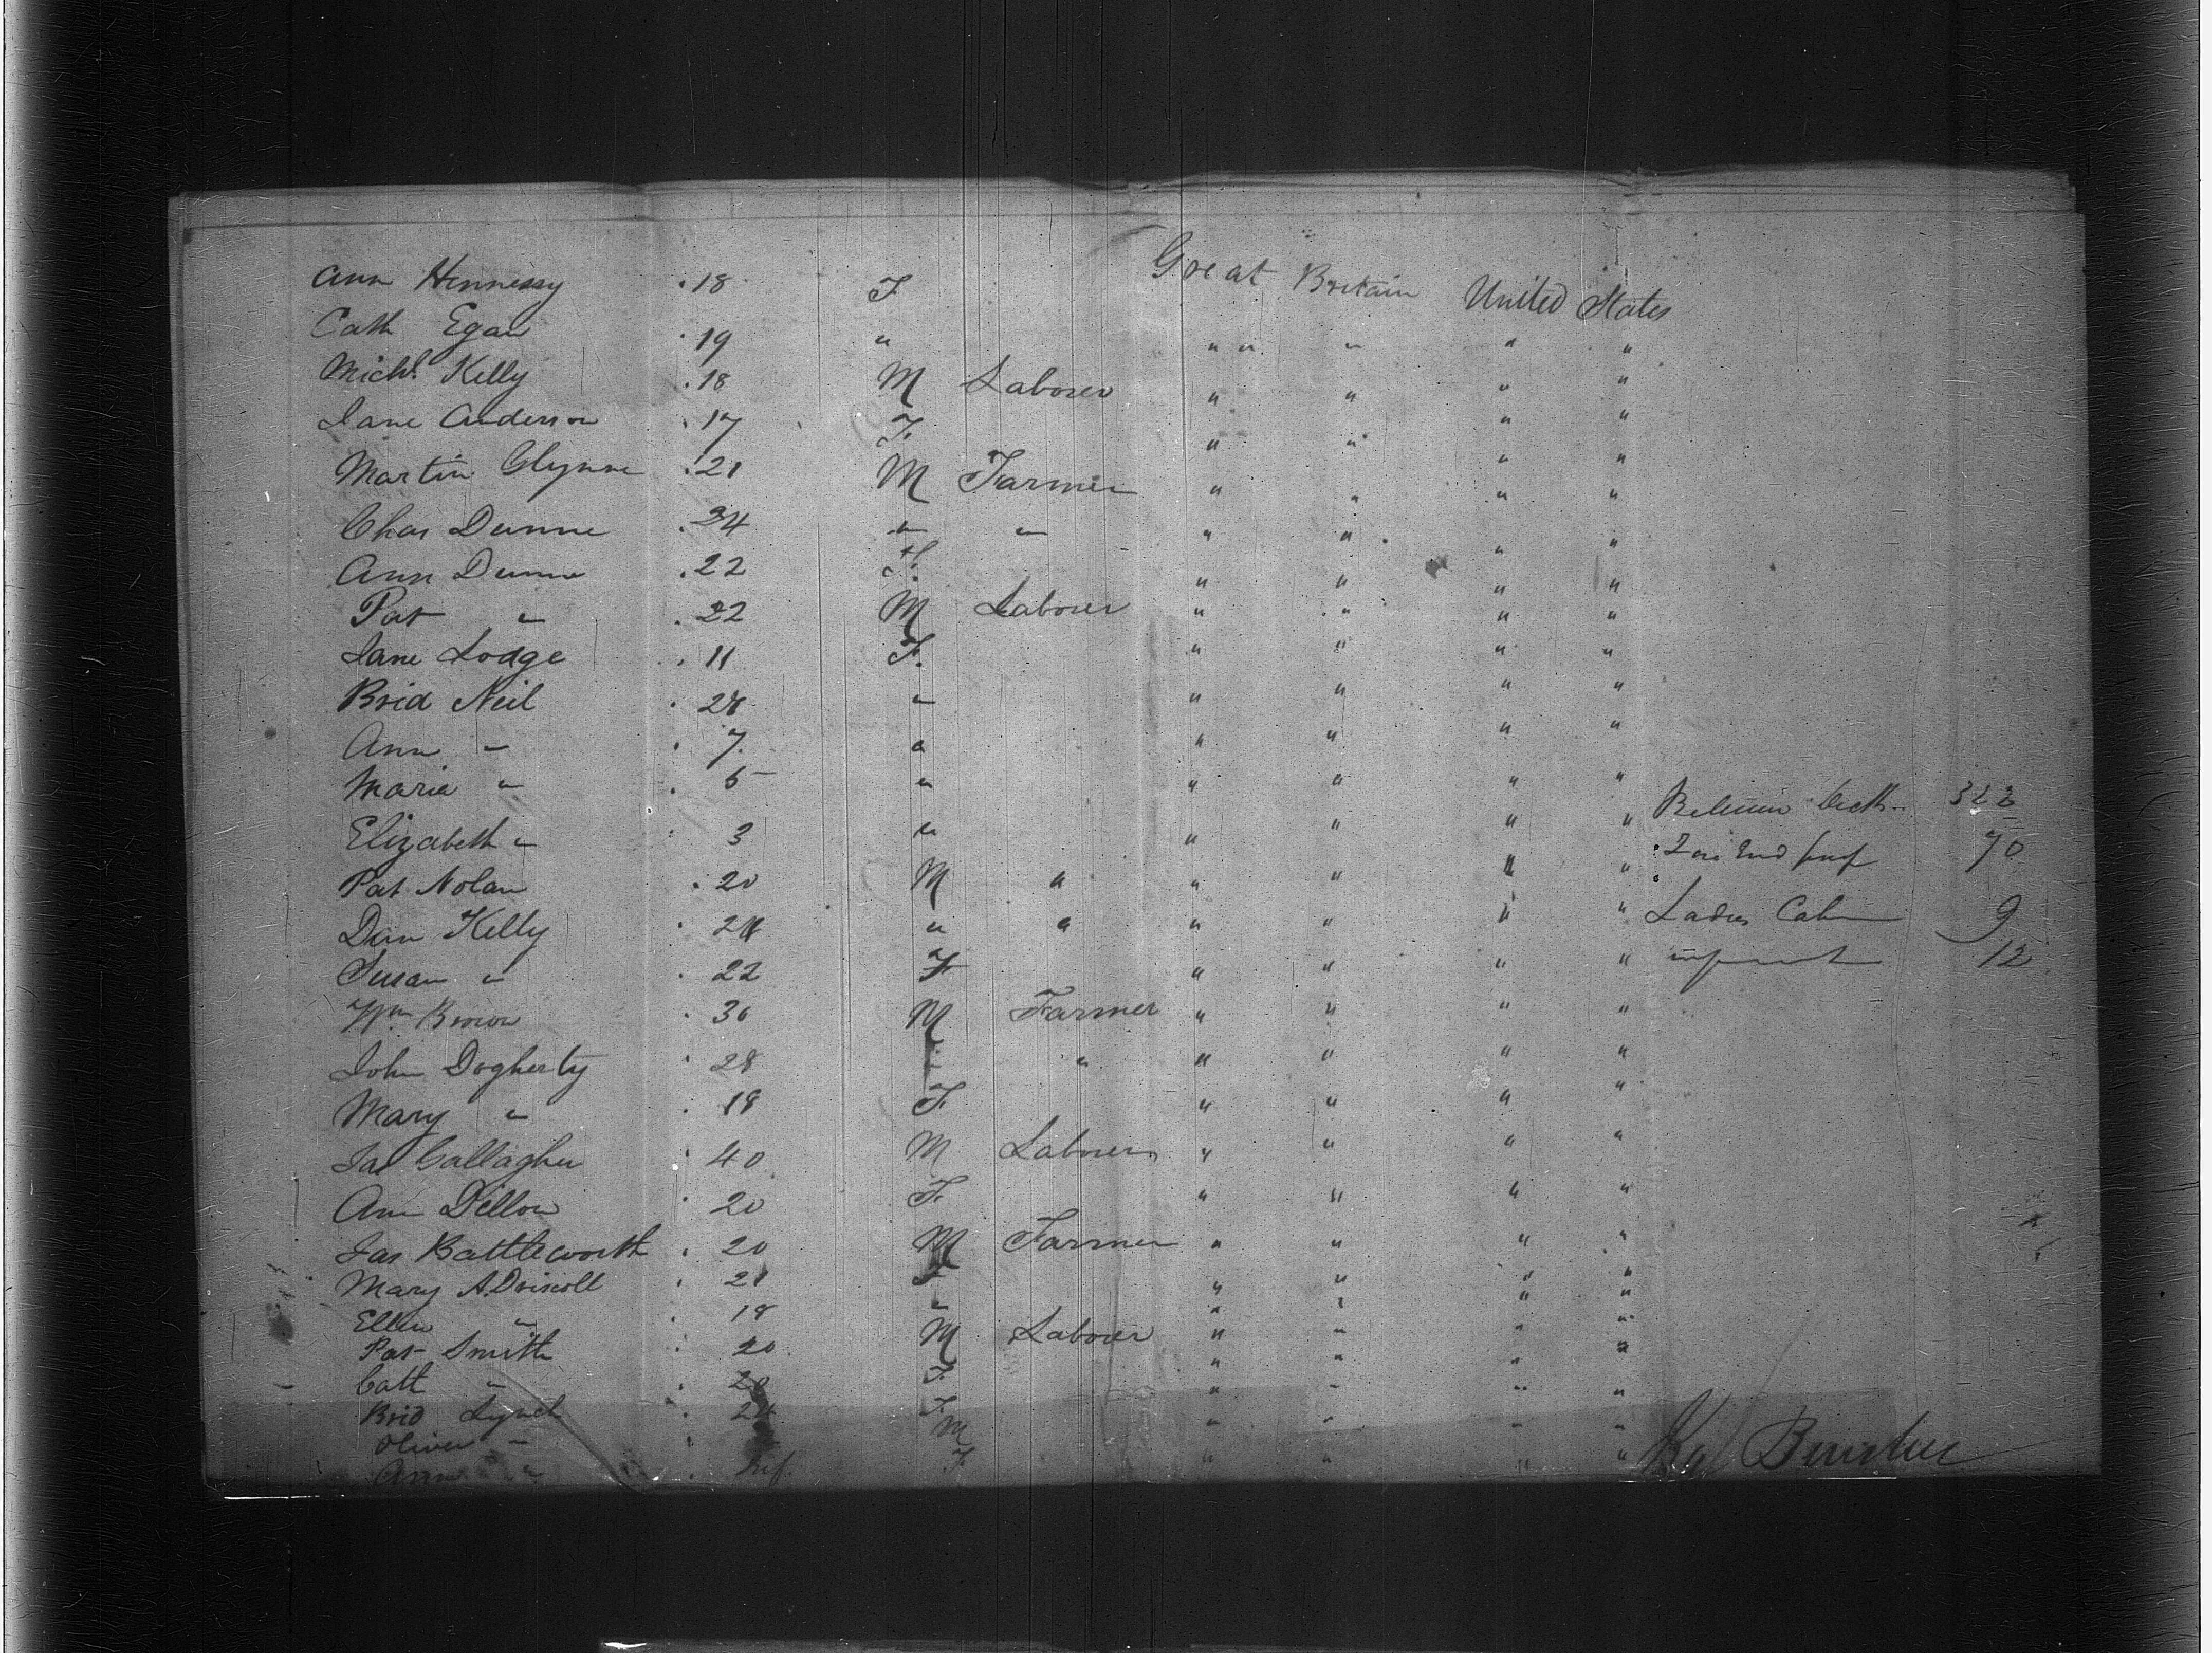 Ann Hennessy . 18 F Great Britain United States
Cath Egan . 19 " " " " " "
Michl. Kelly . 18 M Laborer " " " "
Jane Anderson . 17 F. " " " "
Martin Glynne . 21 M Farmer " " " "
Chas Dunne . 24 " " " " " "
Ann Dunne . 22 F. " " " "
Pat " . 22 M Laborer " " " "
Jane Lodge . 11 F. " " " "
Brid Neil . 28 " " " " "
Ann " . 7 " " " " "
Maria " . 5 " " " " "
Elizabeth " . 3 " " " " " Between Deck 322
Pat Nolan . 20 M " " " " " 70
Dan Kelly . 24 " " " " " " Ladies Cabin 9
Susan " . 22 F " " " " infant 12
Wm Brown . 30 M Farmer " " " "
John Dogherty . 28 " " " " "
Mary " . 18 F. " " " "
Jas Gallagher . 40 M Laborer " " " "
Ann Dillon . 20 F. " " " "
Jas Battleworth . 20 M Farmer " " " "
Mary A. Driscoll . 21 F " " " "
Ellen " . 18 " " " " "
Pat Smith . 20 M Laborer " " " "
Cath " . 20 F. " " " "
Brid Lynch . 24 F " " " "
Oliver " . M " " " "
Ann " . Inf. F " " " "